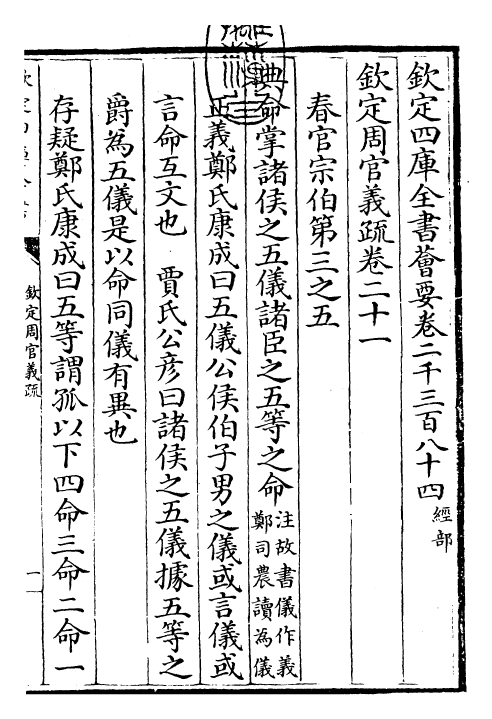 欽定四庫全書薈要卷二千三百八十四經部
欽定周官義疏卷二十一
春官宗伯第三之五
典命掌諸侯之五儀諸臣之五等之命注故書儀作義鄭司農讀為儀
正義鄭氏康成曰五儀公侯伯子男之儀或言儀或
言命互文也 賈氏公彦曰諸侯之五儀據五等之
爵為五儀是以命同儀有異也
存疑鄭氏康成曰五等謂孤以下四命三命二命一
欽定周官義疏
一